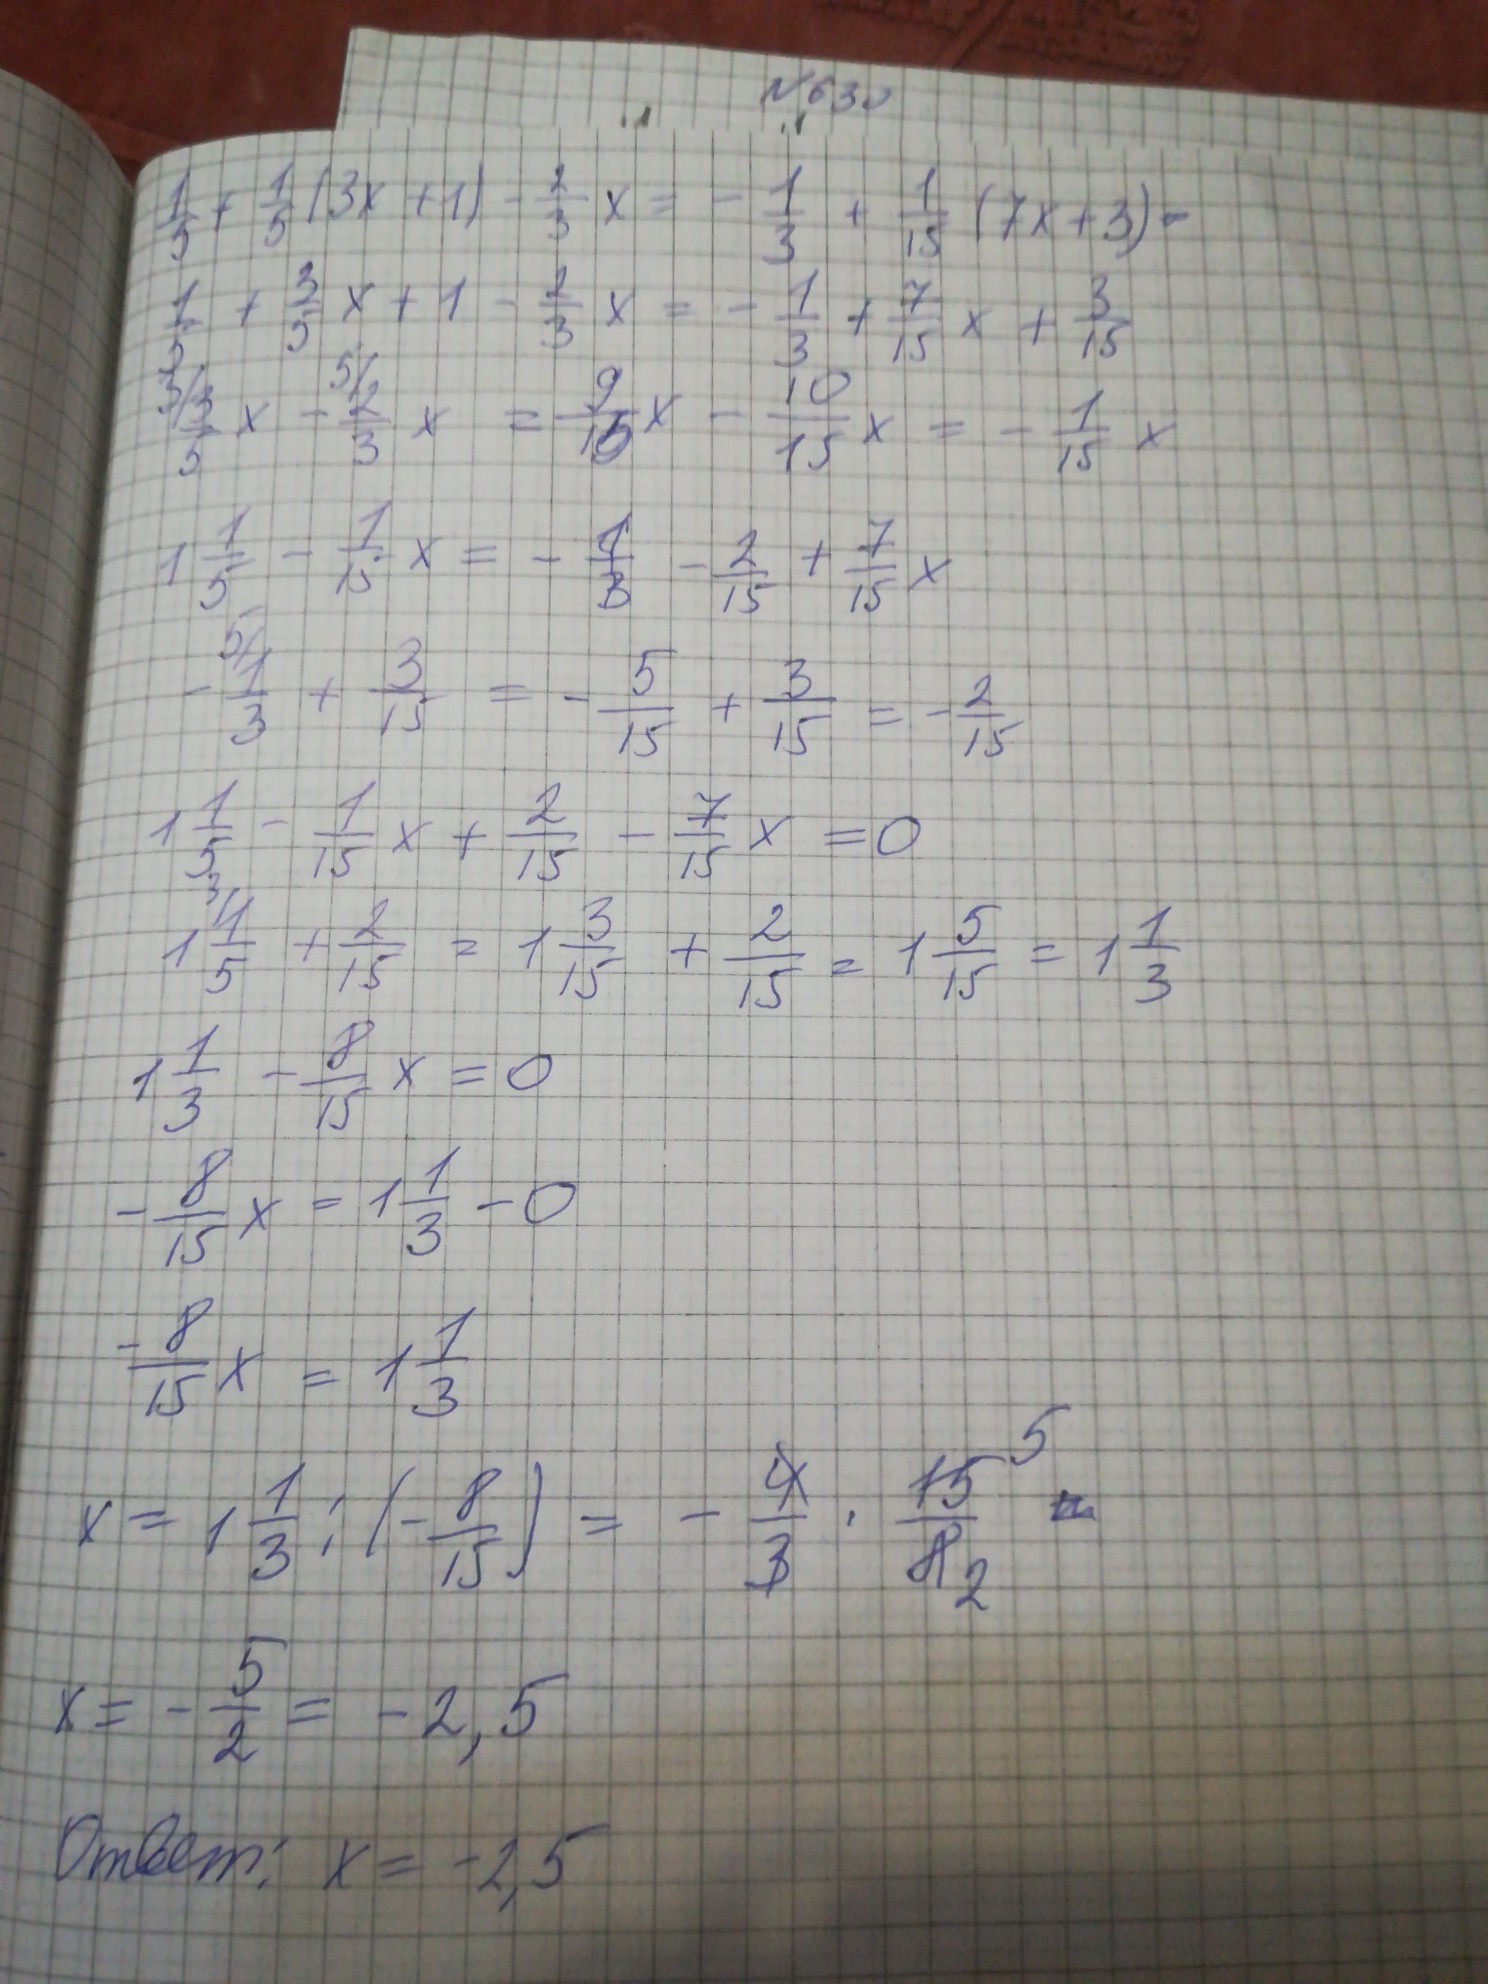 №630
1/5 + 1/5 (3x + 1) - 2/3 x = - 1/3 + 1/15 (7x + 3) =
1/5 + 3/5 x + 1 - 2/3 x = - 1/3 + 7/15 x + 3/15
3/ 3/5 x - 5/ 2/3 x = 9/15 x - 10/15 x = - 1/15 x
1 1/5 - 1/15 x = - 2/15 + 7/15 x
- 5/ 1/3 + 3/15 = - 5/15 + 3/15 = - 2/15
1 1/5 - 1/15 x + 2/15 - 7/15 x = 0
1 3/ 1/5 + 2/15 = 1 3/15 + 2/15 = 1 5/15 = 1 1/3
1 1/3 - 8/15 x = 0
- 8/15 x = 1 1/3 - 0
- 8/15 x = 1 1/3
x = 1 1/3 : (- 8/15) = - 4/3 · 15 5/8 2 =
x = - 5/2 = - 2,5
Ответ: x = -2,5